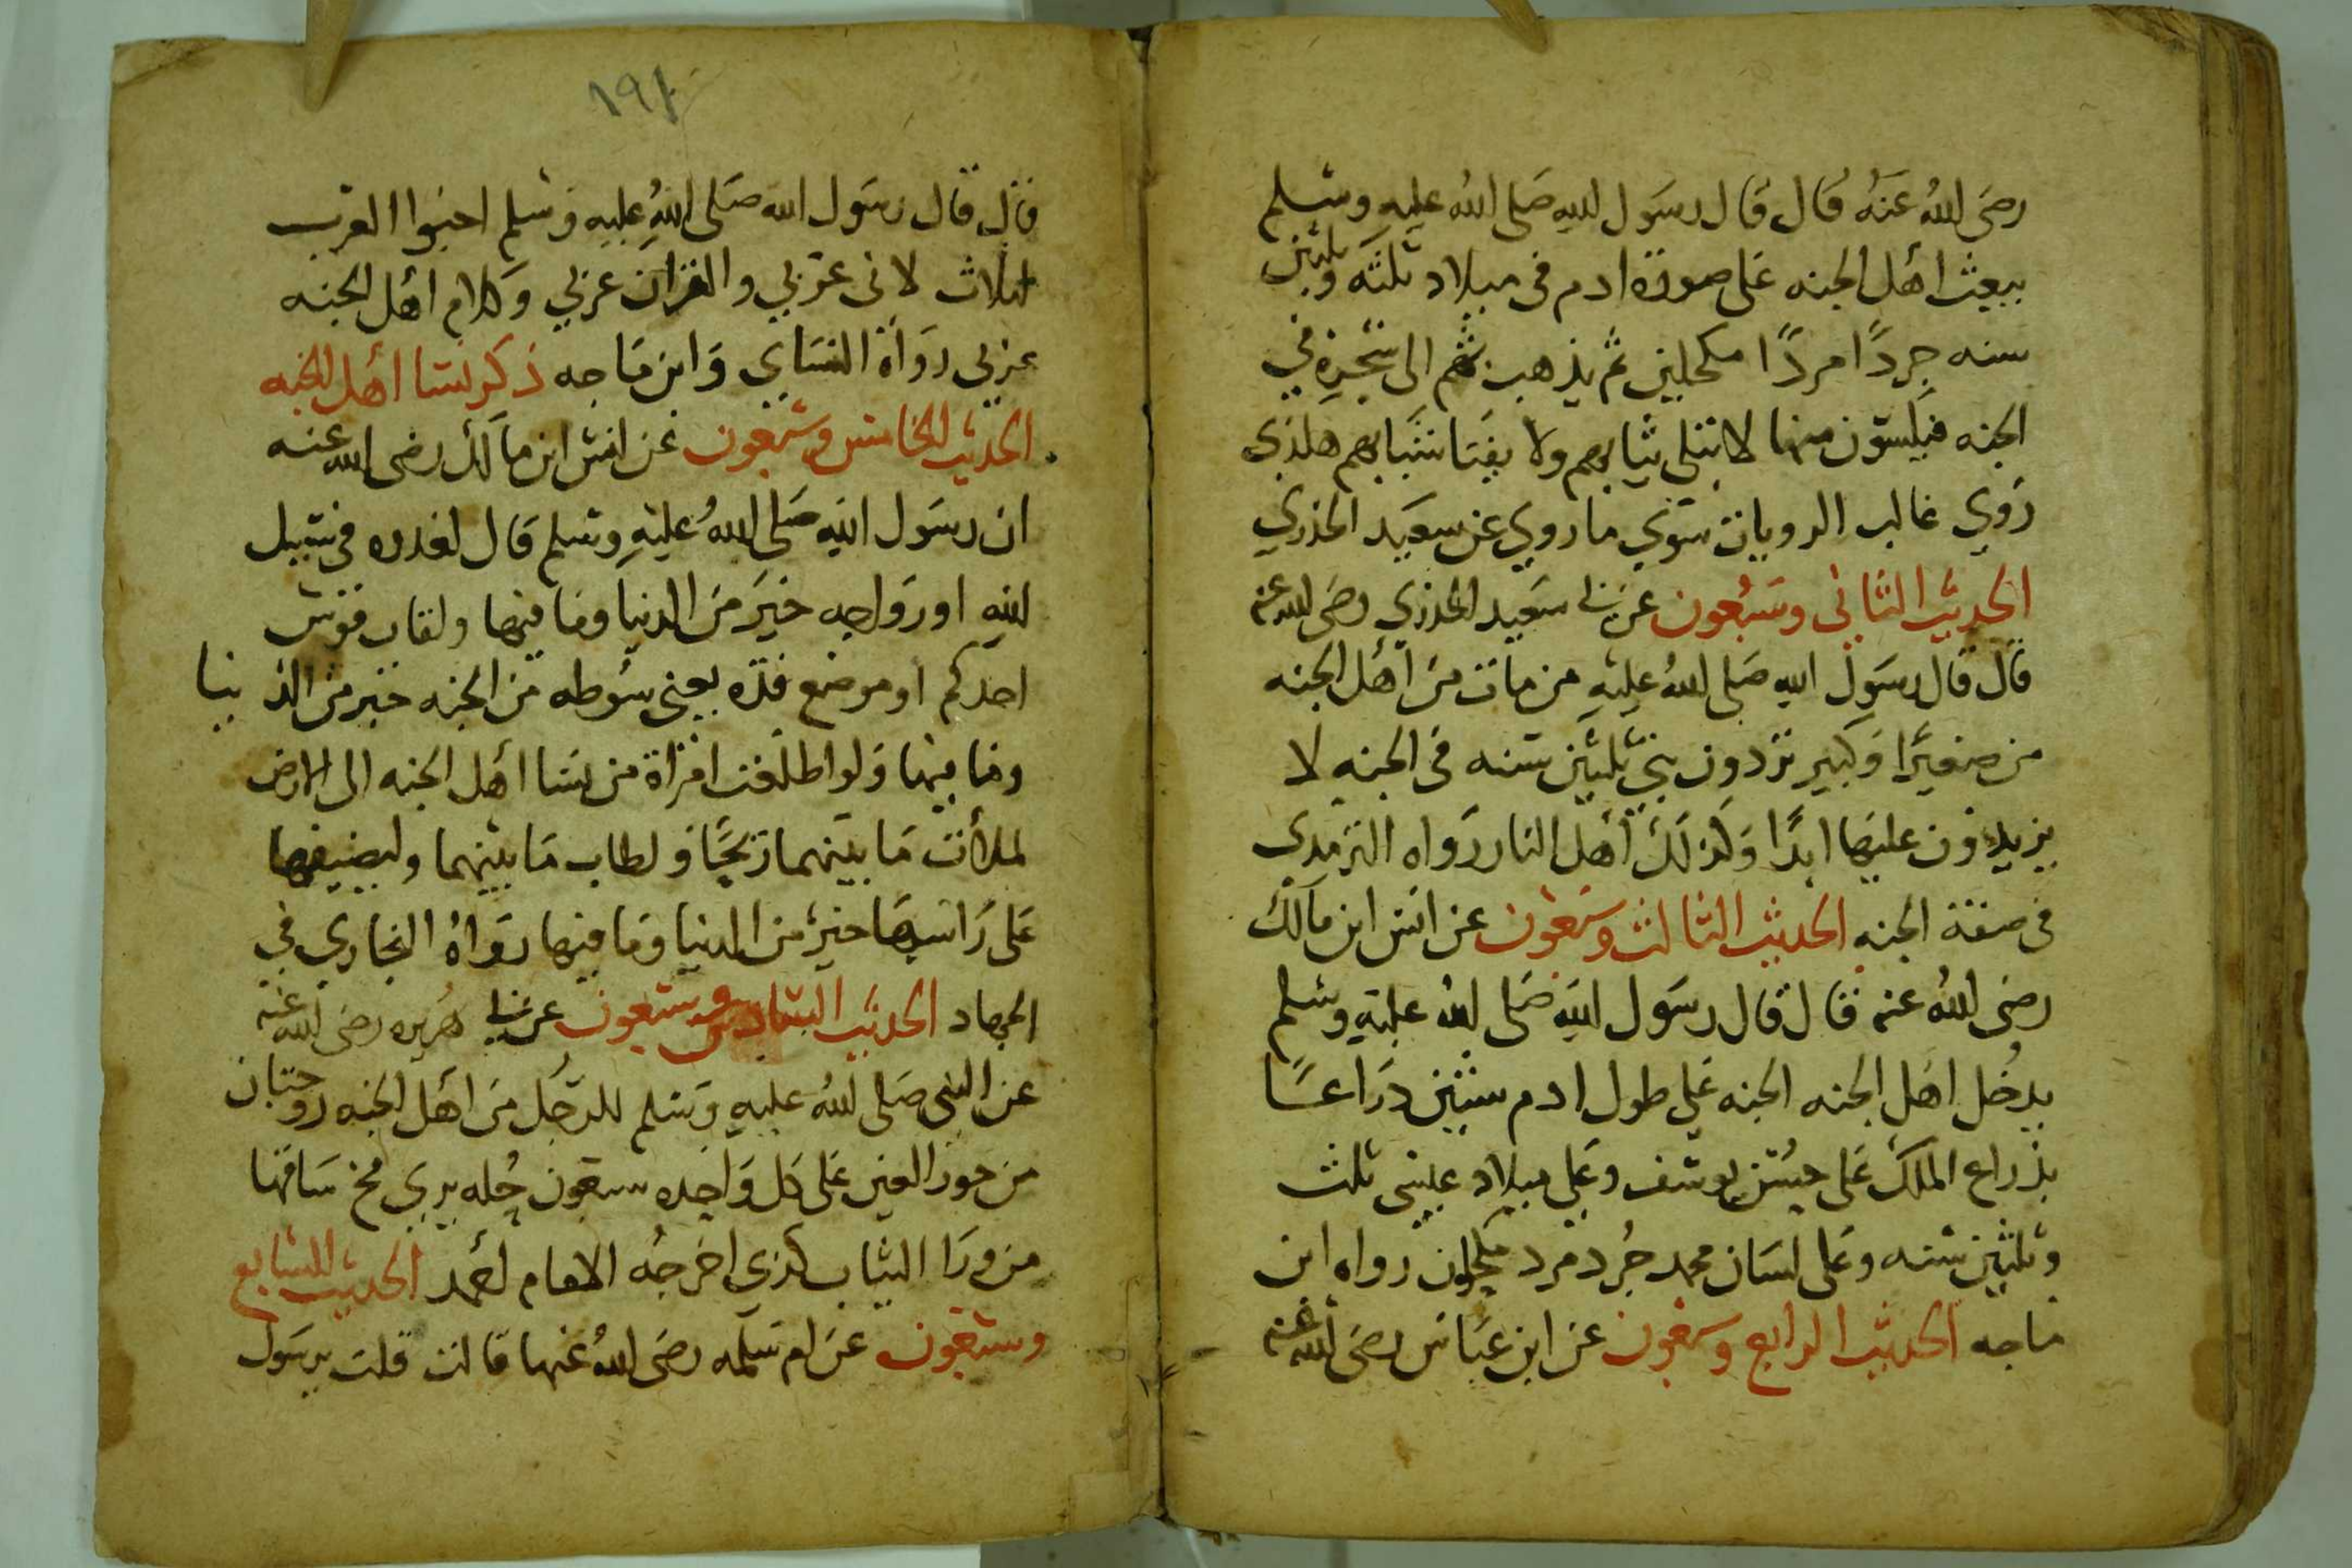 رضى الله عنه قال قال رسول الله صلى الله عليه وسلم
يبعث اهل الجنه على صورة ادم فى ميلاد ثلثه وثلثين
سنه جردًا مردًا مكحلين ثم يذهب بهم الى شجره في
الجنه فيلبسون منها لا تبلى ثيابهم ولا يفنا شبابهم هكذى
روي غالب الرويات سوي ما روي عن سعيد الخذري
الحديث الثانى وسبعون عن ابى سعيد الخذري رضى الله عنه
قال قال رسول الله صلى الله عليه من مات من اهل الجنه
من صغيرًا وكبير يردون بنى ثلثين سنه فى الجنه لا
يزيدون عليها ابدًا وكذلك اهل النار رواه الترمدى
فى صفة الجنه الحديث الثالث وسبعون عن انس ابن مالك
رضى الله عنه قال قال رسول الله صلى الله عليه وسلم
يدخل اهل الجنه الجنه على طول ادم ستين دراعا
بذراع الملك على حسن يوسف وعلى ميلاد عيسى ثلث
وثلثين سنه وعلى لسان محمد جُرد مرد مكحلون رواه ابن
ماجه الحديث الرابع وسبعون عن ابن عباس رضى الله عنه
١٩٤
قال قال رسول الله صلى الله عليه وسلم احبوا العرب
لثلاث لانى عربي والقران عربي وكلام اهل الجنه
عربى رواه النساي وابن ماجه ذكر نسا اهل الجنه
الحديث الخامس وسبعون عن انس ابن مالك رضى الله عنه
ان رسول الله صلى الله عليه وسلم قال لغدوه فى سبيل
الله او رواحه خير من الدنيا وما فيها ولقاب قوس
احدكم او موضع قده يعنى سوطه من الجنه خير من الدنيا
وما فيها ولو اطلعت امراة من نسا اهل الجنه الى الارض
لملأت ما بينهما ريحًا ولطاب ما بينهما ولنصيفها
على راسها خير من الدنيا وما فيها رواه البخاري في
الجهاد الحديث السادس وسبعون عن ابى هريره رضى الله عنه
عن النبى صلى الله عليه وسلم للرجل من اهل الجنه زوجتان
من حور العين على كل واحده سبعون حُله يري مخ ساقها
من ورا الثياب كذي اخرجه الامام احمد الحديث السابع
وسبعون عن ام سلمه رضى الله عنها قالت قلت يرسول